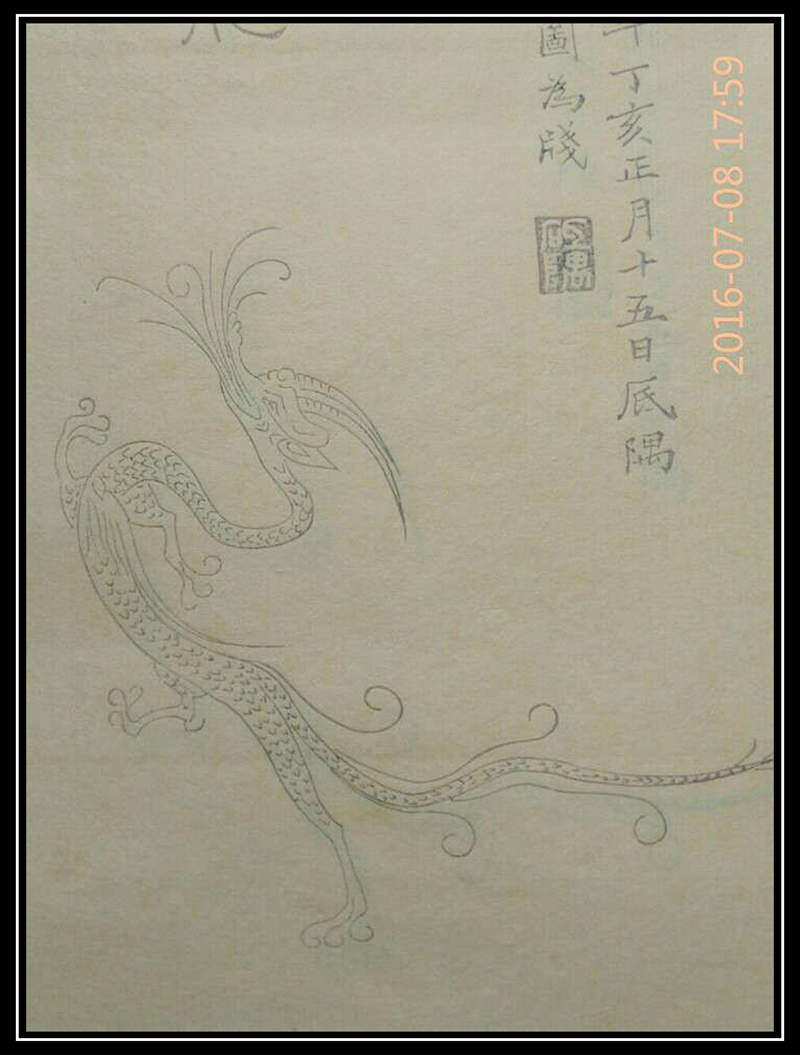 2016-07-08 17:59
丁亥正月十五日底隅
圖為牋